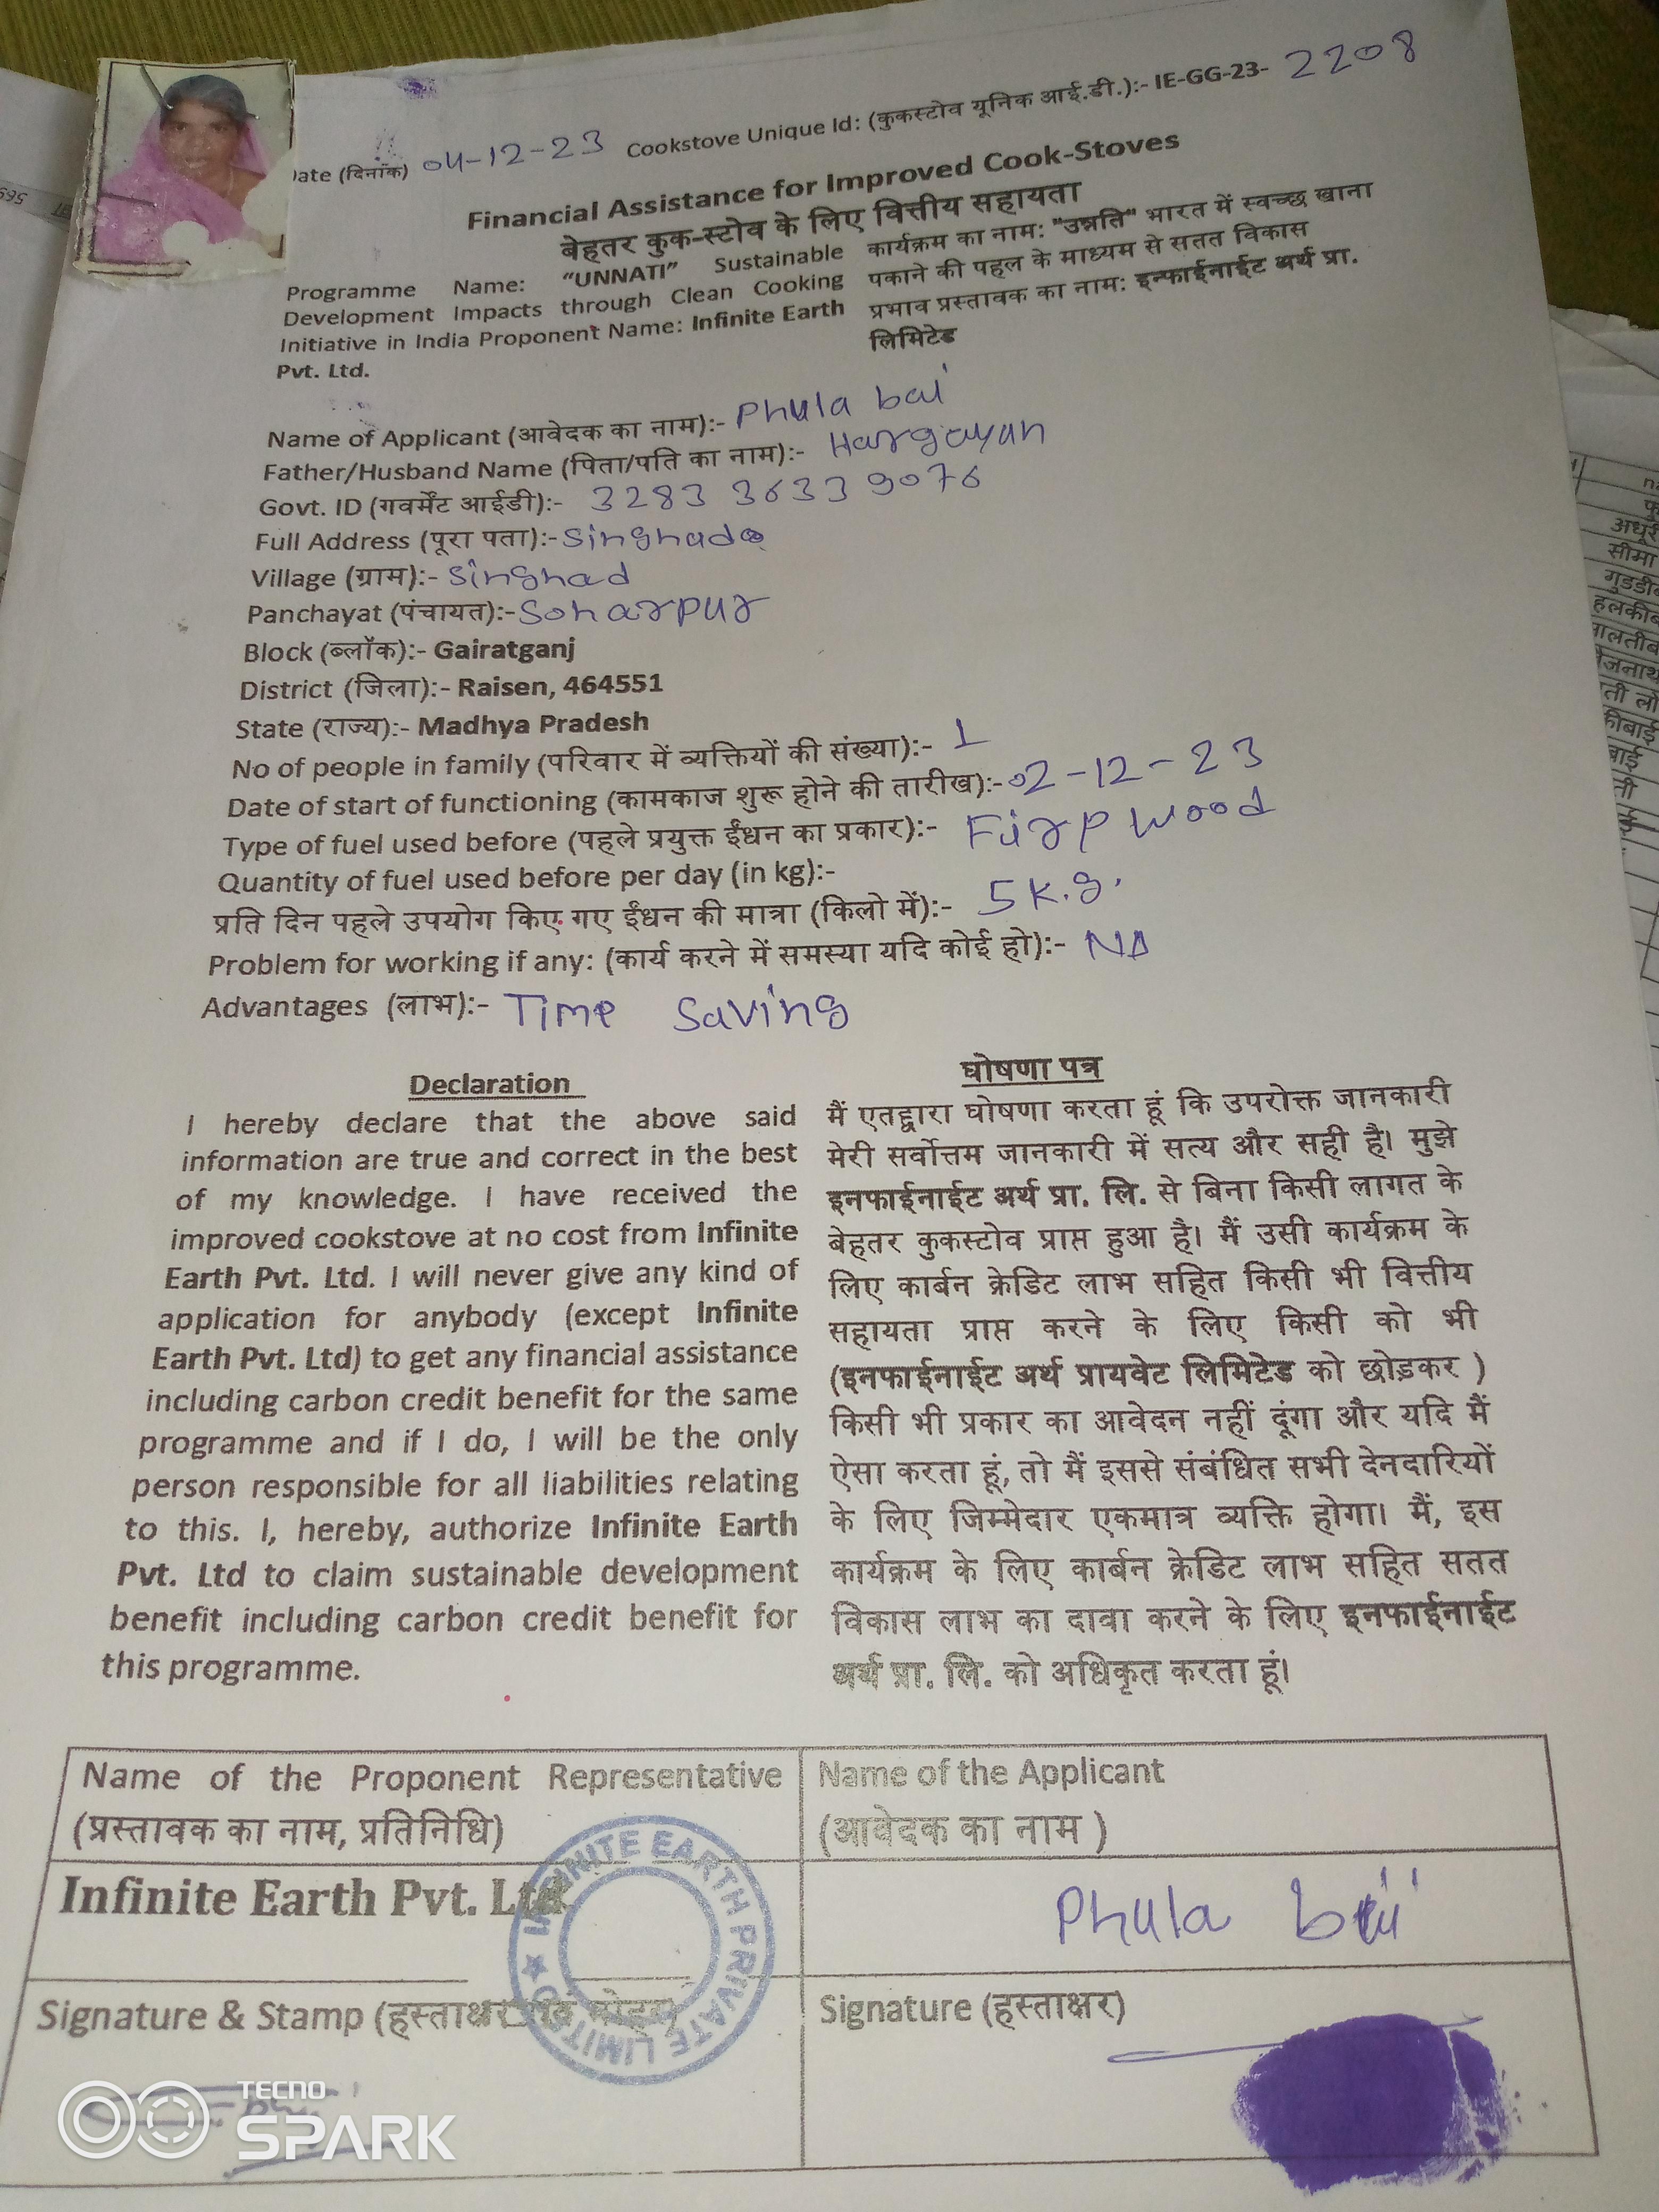 Date (दिनांक) 04-12-23 Cookstove Unique Id: (कुकस्टोव यूनिक आई.डी.):- IE-GG-23- 2208
Financial Assistance for Improved Cook-Stoves
बेहतर कुक-स्टोव के लिए वित्तीय सहायता
Programme Name: "UNNATI" Sustainable
Development Impacts through Clean Cooking
Initiative in India Proponent Name: Infinite Earth
Pvt. Ltd.
कार्यक्रम का नाम: "उन्नति" भारत में स्वच्छ खाना
पकाने की पहल के माध्यम से सतत विकास
प्रभाव प्रस्तावक का नाम: इन्फाईनाईट अर्थ प्रा.
लिमिटेड
Name of Applicant (आवेदक का नाम):- Phula bai
Father/Husband Name (पिता/पति का नाम):- Hargayan
Govt. ID (गवर्मेंट आईडी):- 3283 3633 9076
Full Address (पूरा पता):- Singhad
Village (ग्राम):- Singhad
Panchayat (पंचायत):- Soharpur
Block (ब्लॉक):- Gairatganj
District (जिला):- Raisen, 464551
State (राज्य):- Madhya Pradesh
No of people in family (परिवार में व्यक्तियों की संख्या):- 1
Date of start of functioning (कामकाज शुरू होने की तारीख):- 02-12-23
Type of fuel used before (पहले प्रयुक्त ईंधन का प्रकार):- Firp wood
Quantity of fuel used before per day (in kg):-
प्रति दिन पहले उपयोग किए गए ईंधन की मात्रा (किलो में):- 5 K.g.
Problem for working if any: (कार्य करने में समस्या यदि कोई हो):- NA
Advantages (लाभ):- Time Saving
Declaration
I hereby declare that the above said
information are true and correct in the best
of my knowledge. I have received the
improved cookstove at no cost from Infinite
Earth Pvt. Ltd. I will never give any kind of
application for anybody (except Infinite
Earth Pvt. Ltd) to get any financial assistance
including carbon credit benefit for the same
programme and if I do, I will be the only
person responsible for all liabilities relating
to this. I, hereby, authorize Infinite Earth
Pvt. Ltd to claim sustainable development
benefit including carbon credit benefit for
this programme.
घोषणा पत्र
मैं एतद्द्वारा घोषणा करता हूं कि उपरोक्त जानकारी
मेरी सर्वोत्तम जानकारी में सत्य और सही है। मुझे
इनफाईनाईट अर्थ प्रा. लि. से बिना किसी लागत के
बेहतर कुकस्टोव प्राप्त हुआ है। मैं उसी कार्यक्रम के
लिए कार्बन क्रेडिट लाभ सहित किसी भी वित्तीय
सहायता प्राप्त करने के लिए किसी को भी
(इनफाईनाईट अर्थ प्रायवेट लिमिटेड को छोड़कर )
किसी भी प्रकार का आवेदन नहीं दूंगा और यदि मैं
ऐसा करता हूं, तो मैं इससे संबंधित सभी देनदारियों
के लिए जिम्मेदार एकमात्र व्यक्ति होगा। मैं, इस
कार्यक्रम के लिए कार्बन क्रेडिट लाभ सहित सतत
विकास लाभ का दावा करने के लिए इनफाईनाईट
अर्थ प्रा. लि. को अधिकृत करता हूं।
Name of the Proponent Representative
(प्रस्तावक का नाम, प्रतिनिधि)
Name of the Applicant
(आवेदक का नाम )
Infinite Earth Pvt. Ltd
Phula bai
INFINITE EARTH PRIVATE LIMITED
Signature & Stamp (हस्ताक्षर
Signature (हस्ताक्षर)
TECNO
SPARK
569
अधूरी
सीमा